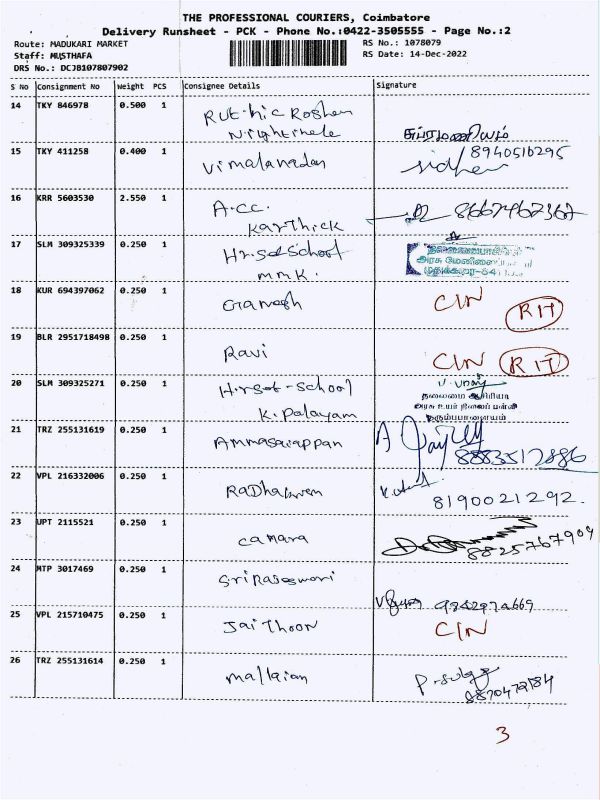 THE PROFESSIONAL COURIERS, Coimbatore
Delivery Runsheet - PCK - Phone No.:0422-3505555 - Page No.:2
Route: MADUKARI MARKET
RS No.: 1078079
Staff: MUSTHAFA
RS Date: 14-Dec-2022
DRS No.: DCJB107807902
S No Consignment No Weight PCS Consignee Details Signature
14 TKY 846978 0.500 1
சுப்ரமணியம்
15 TKY 411258 0.400 1 Vimalanadan 8940516295
16 KRR 5603530 2.550 1 A.cc. 8667467367
Karthick
17 SLM 309325339 0.250 1 Hr.sec School
MMK.
18 KUR 694397062 0.250 1 Ganesh CIN RIT
19 BLR 2951718498 0.250 1 Ravi CIN RIT
20 SLM 309325271 0.250 1 School
K. Palayam
தலைமை ஆசிரியர்
அரசு உயர் நிலைப் பள்ளி
21 TRZ 255131619 0.250 1 Ammasaiappan 8883512886
22 VPL 216332006 0.250 1 8190021292
23 UPT 2115521 0.250 1 Camara 8825767904
24 MTP 3017469 0.250 1
25 VPL 215710475 0.250 1 Jai Thoon CIN
26 TRZ 255131614 0.250 1 mallaian
3